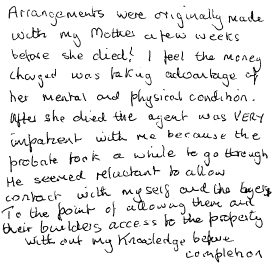 Arrangements were originally made
with my Mother a few weeks
before she died! I feel the money
charged was taking advantage of
her mental and physical condition.
After she died the agent was VERY
impatient with me because the
probate took a while to go through
He seemed reluctant to allow
contact with myself and the buyers
To the point of allowing them and
their builders access to the property
with out my knowledge before
completion